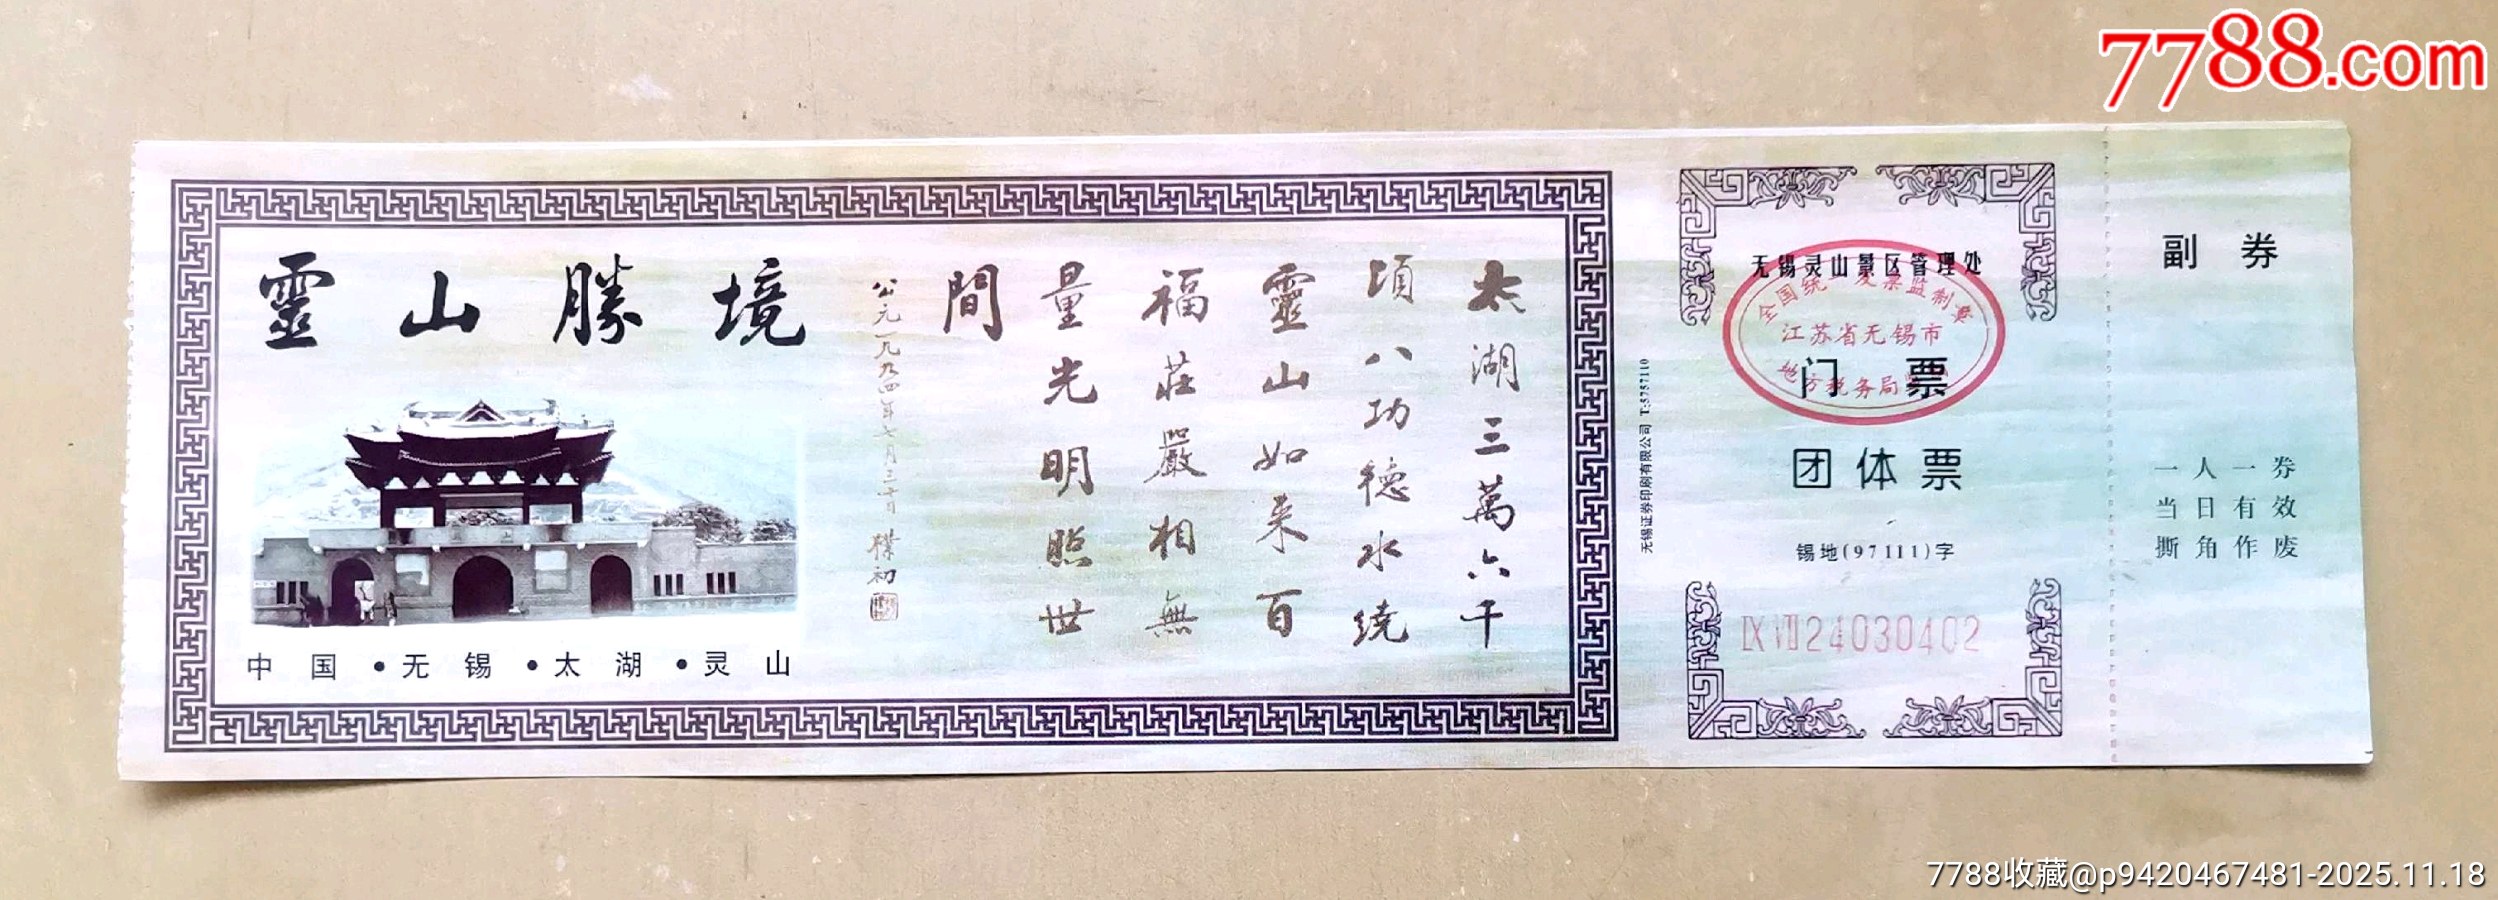 7788.com
靈山勝境
太湖三萬六千
頃八功德水繞
靈山如来百
福莊嚴相無
量光明照世
間
公元一九九四年七月三十日 樸初
中国·无锡·太湖·灵山
无锡证券印刷有限公司 T:5757110
无锡灵山景区管理处
全国统一发票监制章
江苏省无锡市
地方税务局
门票
团体票
锡地(97111)字
IX VIII 24030402
副券
一人一券
当日有效
撕角作废
7788收藏@p9420467481-2025.11.18